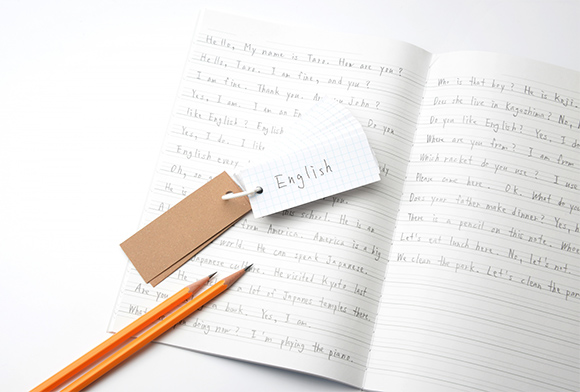 Hello, My name is Taro. How are you?
Hello, Taro. I am fine, and you?
I am fine. Thank you. Are you John?
Yes, I am. I am an En Do you
like English? English
Yes, I do. I lik
English every
Oh, so
He is
English
this school. He is an
from America. America is a big
world. He can speak Japanese.
Japanese culture. He visited Kyoto last
He a lot of Japanes temples there.
Are you book. Yes, I am.
What are doing now? I'm playing the piano.
Who is that boy? He is Koji.
Does she live in Kagoshima? No,
Do you like English? Yes, I do
Where are you from? I am form
Which racket do you use? I use
Please come here. O.K. What do you
Does your father make dinner? Yes, h
There is a pencil on this note. When
Let's eat lunch here. No, let's not.
We clean the park. Let's clean the par